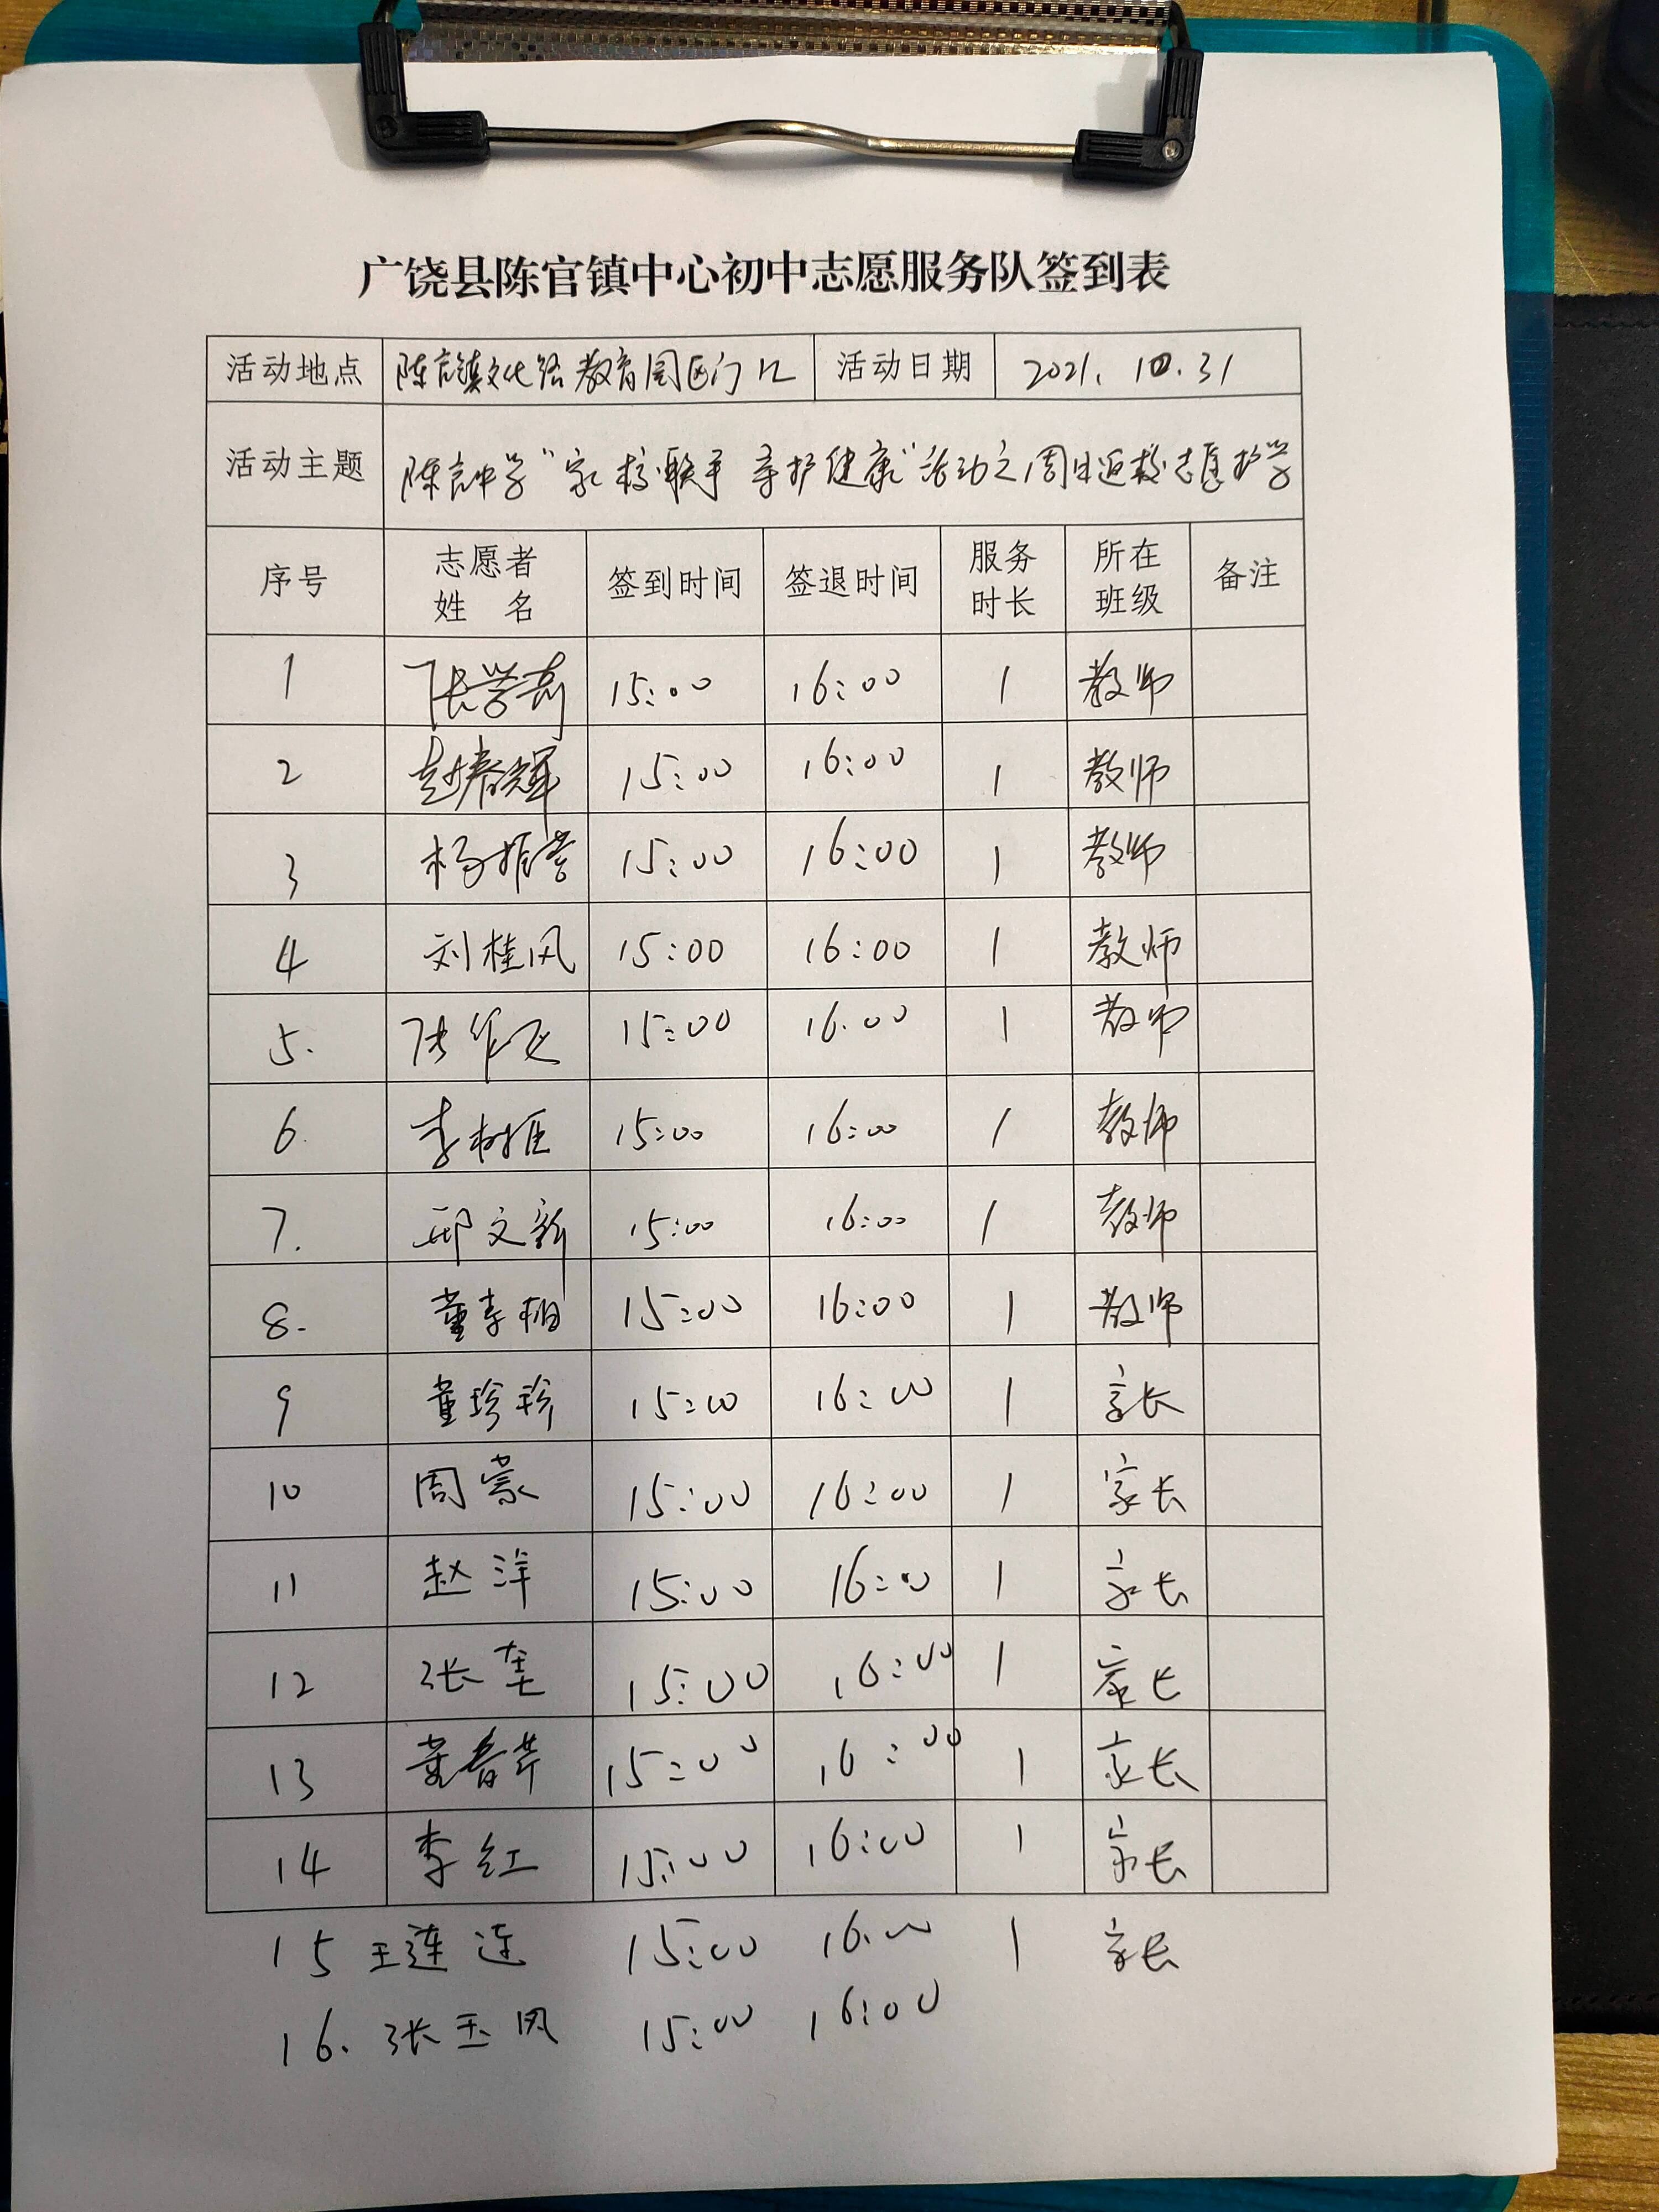 广饶县陈官镇中心初中志愿服务队签到表
活动地点 陈官镇文化路教育园区门口 活动日期 2021.10.31
活动主题 陈官中学“家校联手 守护健康”活动之周日返校志愿护学
序号 志愿者姓 名 签到时间 签退时间 服务时长 所在班级 备注
1 张学 15:00 16:00 1 教师
2 赵春辉 15:00 16:00 1 教师
3 杨振营 15:00 16:00 1 教师
4 刘桂风 15:00 16:00 1 教师
5. 15:00 16.00 1 教师
6. 李树 15:00 16:00 1 教师
7. 邢文新 15:00 16:00 1 教师
8. 董 15:00 16:00 1 教师
9 董珍珍 15:00 16:00 1 家长
10 周蒙 15:00 16:00 1 家长
11 赵洋 15:00 16:00 1 家长
12 张 15:00 16:00 1 家长
13 董春芹 15:00 16:00 1 家长
14 李红 15:00 16:00 1 家长
15 王连连 15:00 16:00 1 家长
16. 张玉凤 15:00 16:00